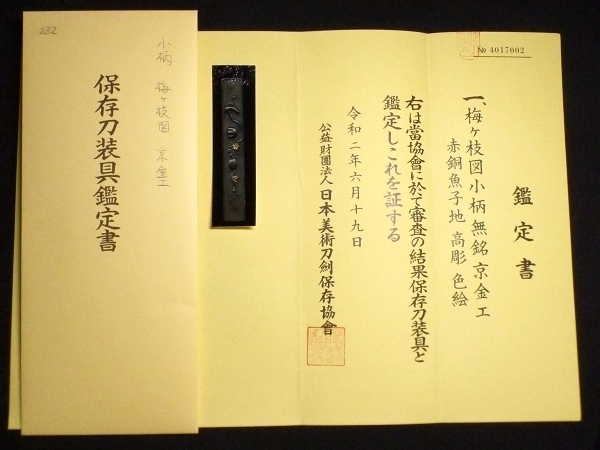 232
小柄 梅ヶ枝図 京金工
保存刀装具鑑定書
№ 4017002
鑑定書
一、梅ヶ枝図小柄 無銘 京金工
赤銅魚子地 高彫 色絵
右は當協會に於て審査の結果保存刀装具と
鑑定しこれを証する
令和二年六月十九日
公益財團法人 日本美術刀剣保存協會